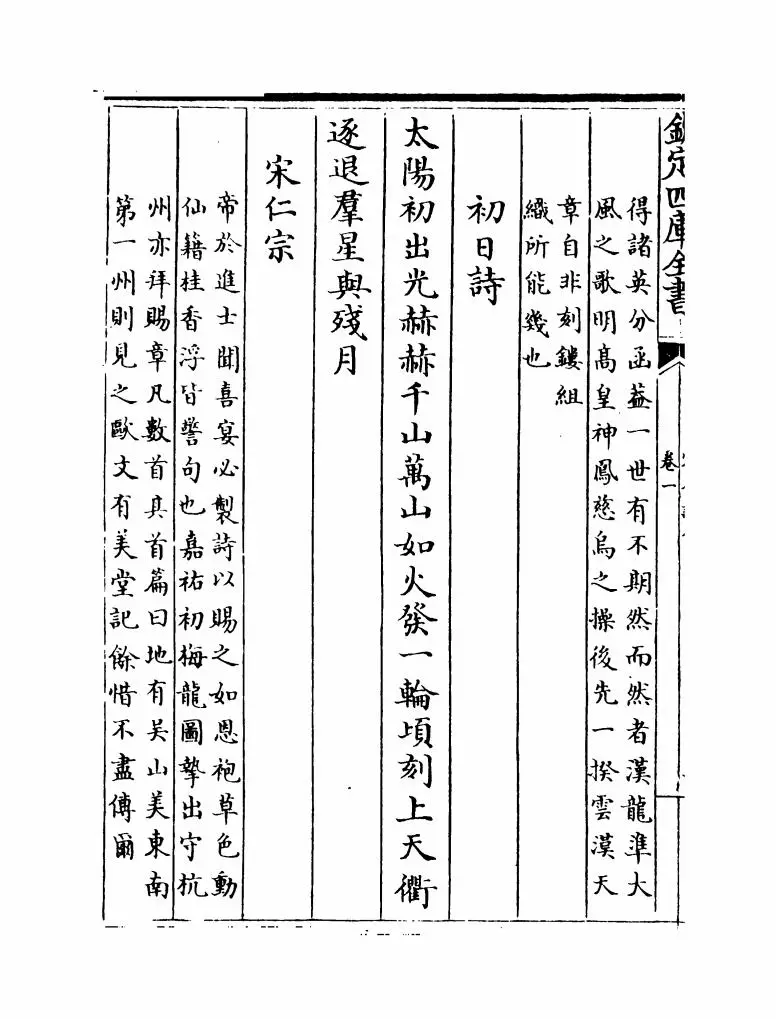 欽定四庫全書
卷一
得諸英分函葢一世有不期然而然者漢龍準大
風之歌明髙皇神鳳慈烏之操後先一揆雲漢天
章自非刻鏤組
織所能幾也
初日詩
太陽初出光赫赫千山萬山如火發一輪頃刻上天衢
逐退羣星與殘月
宋仁宗
帝於進士聞喜宴必製詩以賜之如恩袍草色動
仙籍桂香浮皆警句也嘉祐初梅龍圖摯出守杭
州亦拜賜章凡數首其首篇曰地有吴山美東南
第一州則見之歐文有美堂記餘惜不盡傳爾